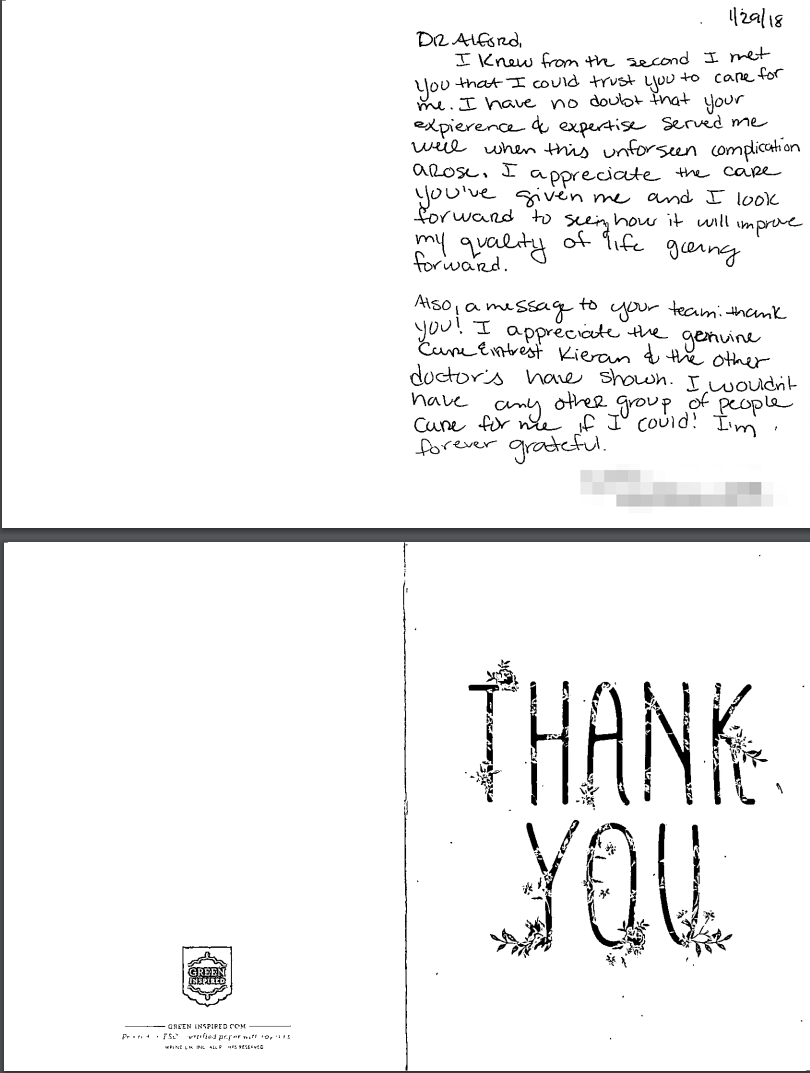 1/29/18
DR Alford,
I knew from the second I met
you that I could trust you to care for
me. I have no doubt that your
expierence & expertise served me
well when this unforseen complication
arose. I appreciate the care
you've given me and I look
forward to seeing how it will improve
my quality of life going
forward.
Also, a message to your team: thank
you! I appreciate the genuine
care & intrest Kieran & the other
doctor's have shown. I wouldn't
have any other group of people
care for me if I could! I'm
forever grateful.
THANK
YOU
GREEN
INSPIRED
GREEN-INSPIRED.COM
FSC certified paper with